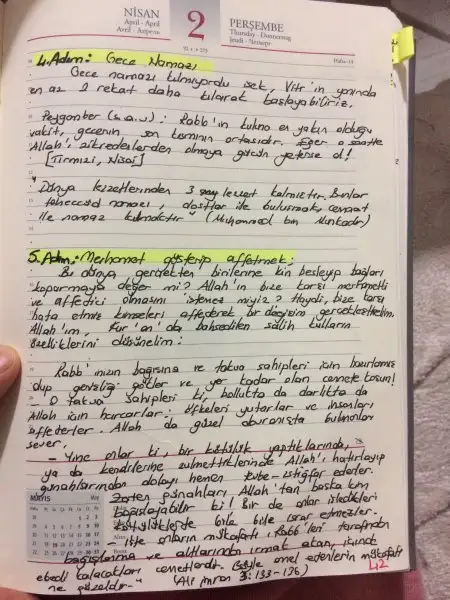 NİSAN
April - April
Avril - Апрель
2
PERŞEMBE
Thursday - Donnerstag
Jeudi - Четверг
Hafta-14
4. Adım: Gece Namazı
Gece namazı kılmıyorduysek, Vitr'in yanında
en az 2 rekat daha kılarak başlayabiliriz.
Peygamber (s.a.v): Rabb'ın kuluna en yakın olduğu
vakit, gecenin son kısmının ortasıdır. Eğer o saatte
Allah'ı zikredenlerden olmaya gücün yeterse ol!
[Tirmizi, Nisai]
"Dünya lezzetlerinden 3 şey lezzet kalmıştır. Bunlar
teheccüd namazı, dostlar ile buluşmak, cemaat
ile namaz kılmaktır" (Muhammed bin Münkedir)
5. Adım: Merhamet gösterip affetmek:
Bu dünya gerçekten birilerine kin besleyip bağları
koparmaya değer mi? Allah'ın bize karşı merhametli
ve affedici olmasını istemez miyiz? Haydi, bize karşı
hata etmiş kimseleri affederek bir değişim gerçekleştirelim.
Allah'ım, Kur'an'da bahsedilen salih kulların
özelliklerini düşünelim:
Rabb'inizin bağışına ve takva sahipleri için hazırlanmış
olup genişliği gökler ve yer kadar olan cennete koşun!
O takva sahipleri ki, bollukta da darlıkta da
Allah için harcarlar; öfkeleri yutarlar ve insanları
affederler. Allah da güzel davranışta bulunanları
sever.
- Yine onlar ki, bir kötülük yaptıklarında,
ya da kendilerine zulmettiklerinde Allah'ı hatırlayıp
günahlarından dolayı hemen tevbe-istiğfar ederler.
Zaten günahları, Allah'tan başka kim
bağışlayabilir ki! Bir de onlar işledikleri
kötülüklerde bile bile ısrar etmezler.
- İşte onların mükafatı, Rabb'leri tarafından
bağışlanma ve altlarından ırmak akan, içinde
ebedi kalacakları cennetlerdir. Böyle amel edenlerin mükafatı
ne güzeldir." (Ali imran 3: 133-136)
42
MAYIS
May